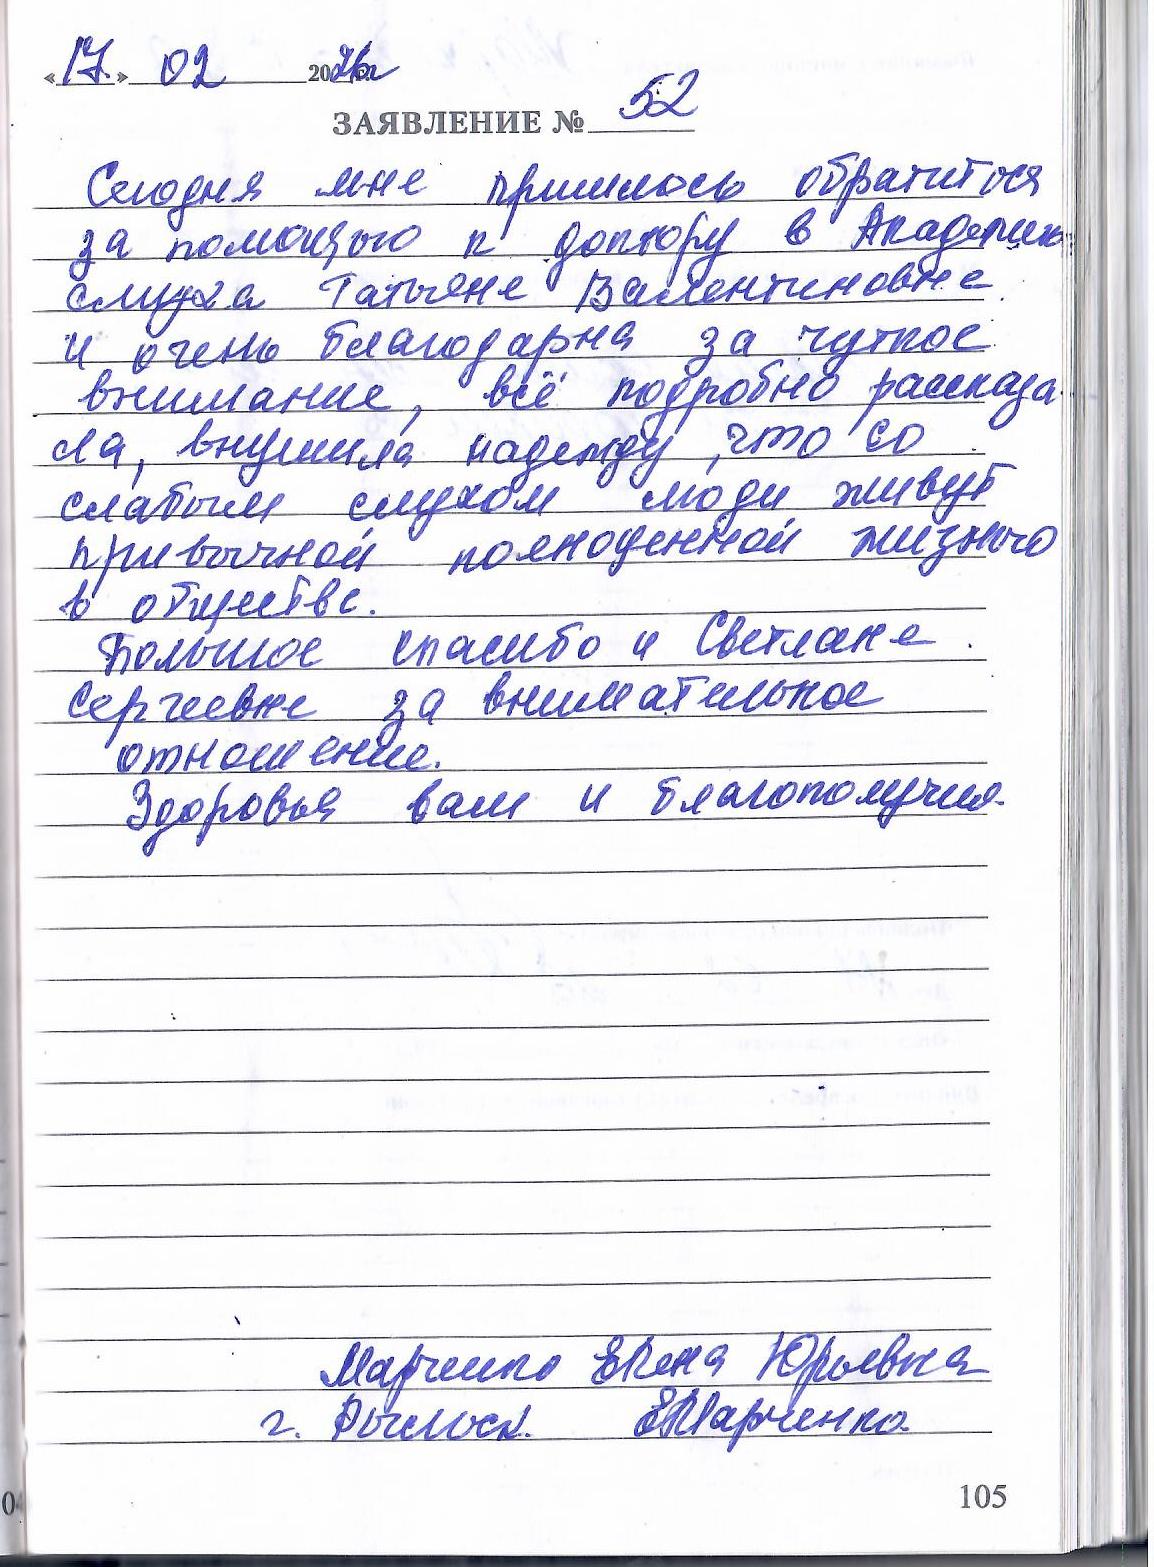 «17.» 02 2026г
ЗАЯВЛЕНИЕ № 52
Сегодня мне пришлось обратиться
за помощью к доктору в Академию
слуха Татьяне Валентиновне
и очень благодарна за чуткое
внимание, всё подробно рассказа-
ла, внушила надежду, что со
слабым слухом люди живут
привычной полноценной жизнью
в обществе.
Большое спасибо и Светлане
Сергеевне за внимательное
отношение.
Здоровья вам и благополучия.
Марченко Елена Юрьевна
г. Рыльск. ЕМарченко
105